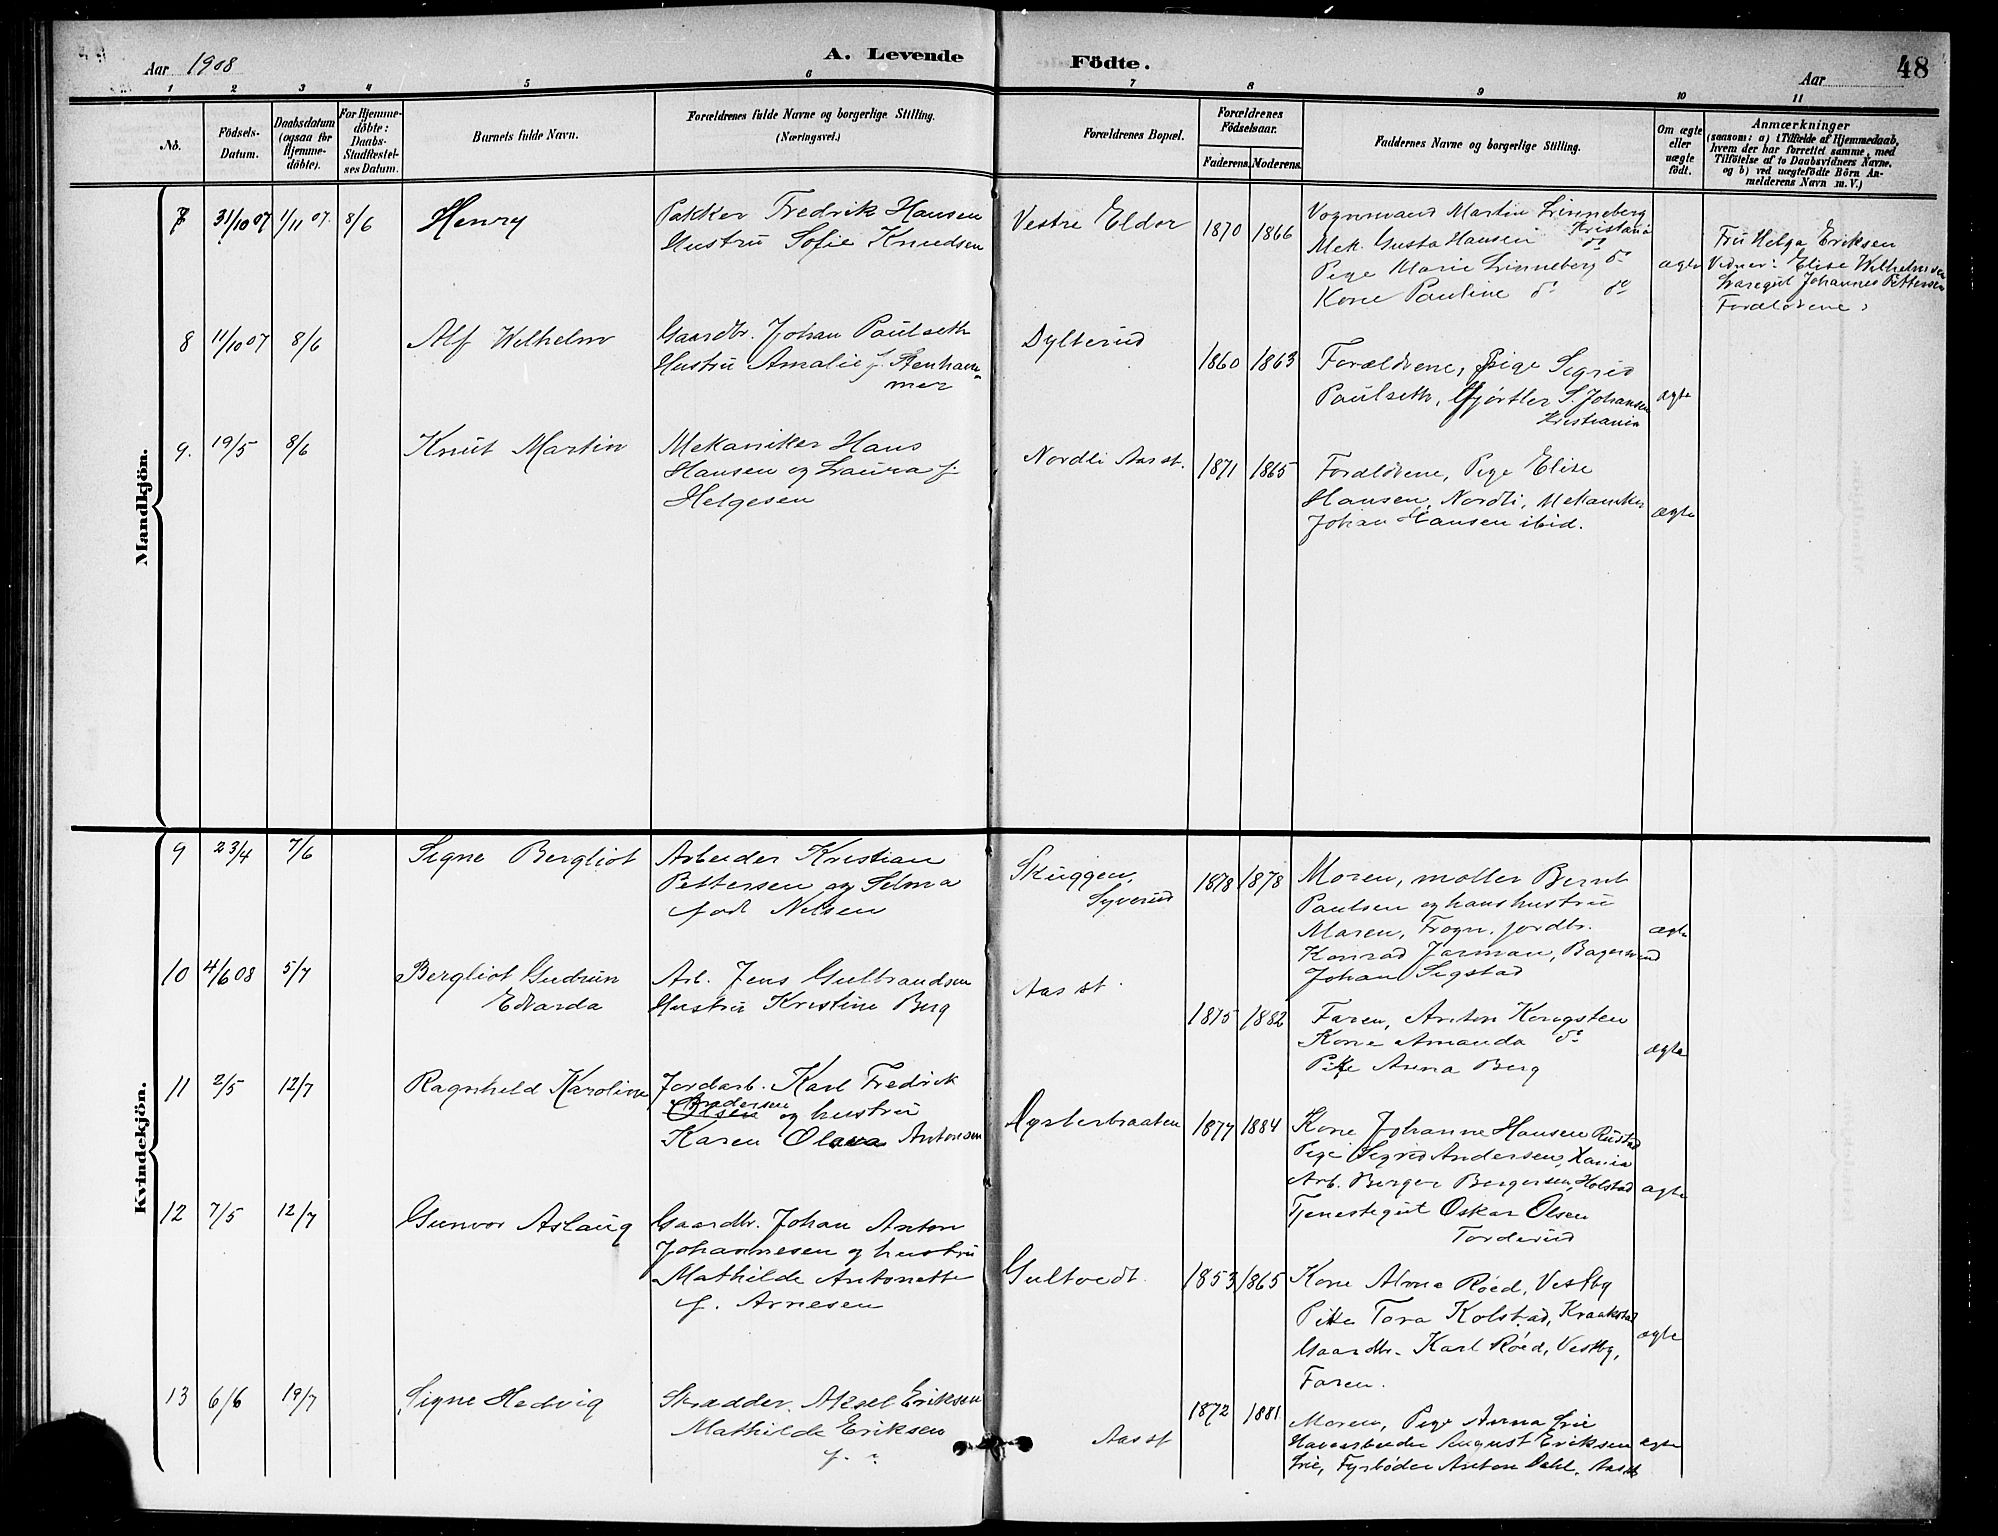 Aar 1908
A. Levende Födte.
Aar
48
1 2 3 4 5 6 7 8 9 10 11
No.
Födsels-
Datum.
Daabsdatum
(ogsaa for
Hjemme-
döbte).
For Hjemme-
döbte:
Daabs-
Stadfæstel-
ses Datum.
Barnets fulde Navn.
Forældrenes fulde Navne og borgerlige Stilling.
(Næringsvei.)
Forældrenes Bopæl.
Forældrenes
Födselsaar.
Faderens. Moderens.
Faddernes Navne og borgerlige Stilling.
Om ægte
eller
uægte
födt.
Anmærkninger
(saasom: a) i Tilfælde af Hjemmedaab,
hvem der har forrettet samme, med
Tilföielse af to Daabsvidners Navne,
og b) ved uægtefödte Börn An-
melderens Navn m. V.)
Mandkjön.
7 31/10 07 1/11 07. 8/6 Henry
Pakker Fredrik Hansen
Hustru Sofie Knudsen
Vestre Eldor 1870 1866
Vognmand Martin Linneberg
Kristania
Mek. Gusta Hansen do
Pige Marie Linneberg do
Kone Pauline do do
ægte
Fru Helga Eriksen
Vidner: Elise Wilhelmsen
Læregut Johannes Pettersen
Forældrene
8 11/10 07 8/6 Alf Wilhelm
Gaardbr. Johan Paulseth
Hustru Amalie f. Stenham-
mer
Dylterud 1860 1863
Forældrene, Pige Sigrid
Paulseth, Gjørtler S. Johansen
Kristiania
ægte
9. 19/5 8/6 Knut Martin
Mekaniker Hans
Hansen og Laura f.
Helgesen
Nordli Aas st. 1871 1865
Forældrene, Pige Elise
Hansen, Nordli, Mekaniker
Johan Hansen ibid.
ægte
Kvindekjön.
9 23/4 7/6 Signe Bergliot
Arbeider Kristian
Pettersen og Selma
født Nilsen
Skuggen,
Syverud
1878 1878
Moren, møller Bernt
Paulsen og hans hustru
Maren, Frogn. jordbr.
Konrad Jarman, Bagerwend
Johan Sigstad
ægte
10 4/6 08 5/7 Bergliot Gudrun
Edvarda
Arb. Jens Gulbrandsen
Hustru Kristine Berg
Aas st. 1875 1882
Faren, Anton Kongsten
Kone Amanda do
Pike Anna Berg
ægte
11 2/5 12/7 Ragnhild Karoline
Jordarb. Karl Fredrik
Andersen
Olsen og hustru
Karen Olava Antonsen
Dysterbraaten 1877 1884
Kone Johanne Hansen Rustad
Pige Sigrid Andersen, Xania
Arb. Berger Bergersen, Holstad
Tjenestegut Oskar Olsen
Torderud
ægte
12 7/5 12/7 Gunvor Aslaug
Gaardbr. Johan Anton
Johannesen og hustru
Mathilde Antonette
f. Arnesen
Gultvedt 1853 1865
Kone Alma Røed, Vestby
Pike Tora Kolstad, Kraakstad
Gaardbr. Karl Røed, Vestby,
Faren.
ægte
13 6/6 19/7 Signe Hedvig
Skrædder. Aksel Eriksen
Mathilde Eriksen
f. "
Aas st 1872 1881
Moren, Pige Anna Lie
Havearbeider August Eriksen
Lie, Fyrbøder Anton Dahl, Aas st
ægte